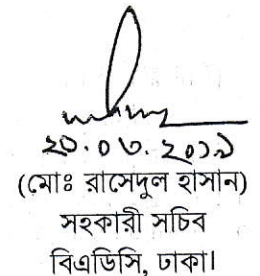 ২০.০৩.২০১৯
(মোঃ রাসেদুল হাসান)
সহকারী সচিব
বিএডিসি, ঢাকা।